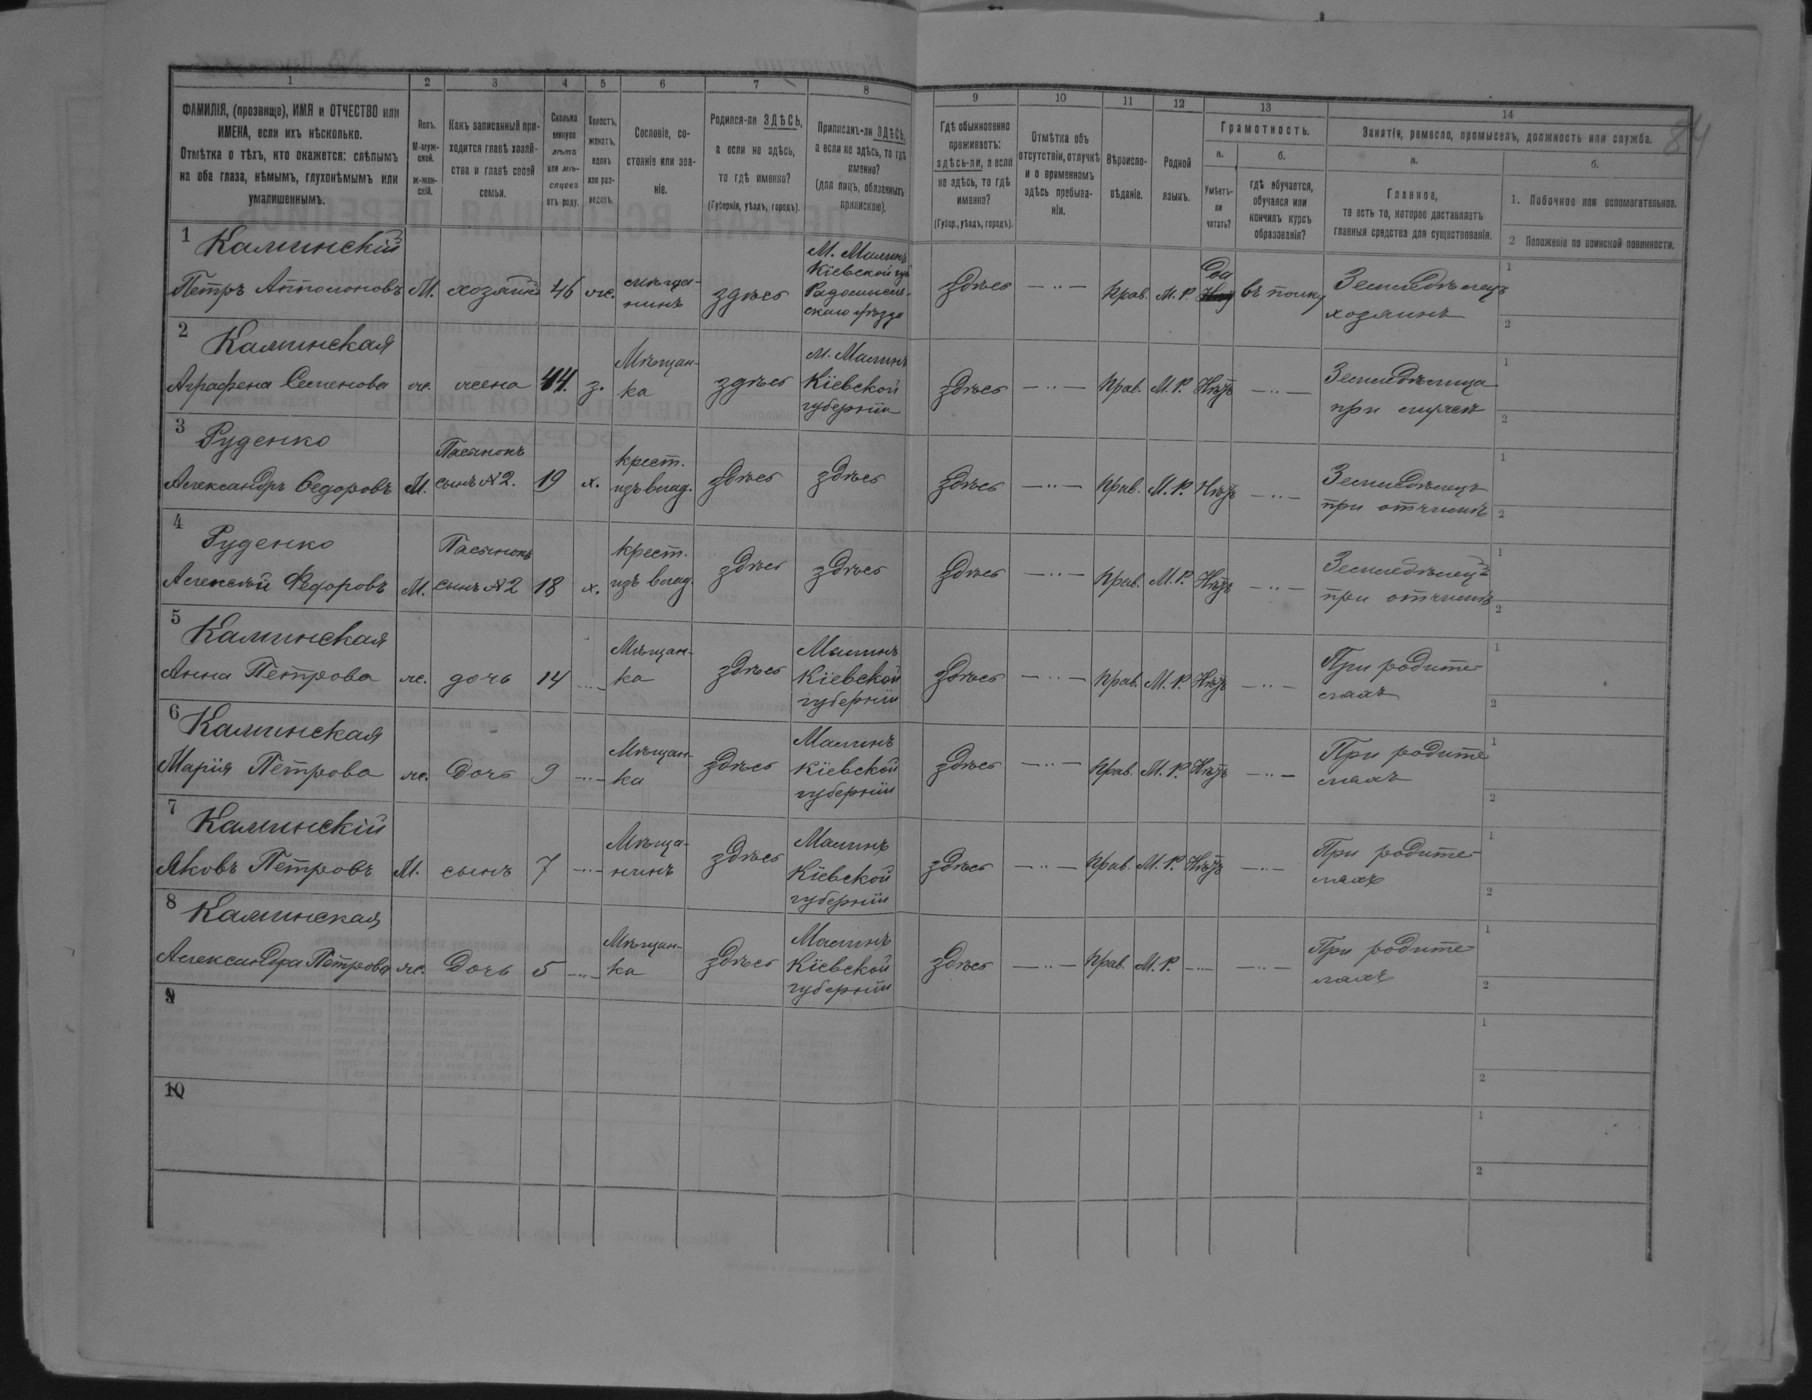 84
1 2 3 4 5 6 7 8 9 10 11 12 13 14
ФАМИЛІЯ, (прозвище), ИМЯ и ОТЧЕСТВО или
ИМЕНА, если ихъ нѣсколько.
Отмѣтка о тѣхъ, кто окажется: слѣпымъ
на оба глаза, нѣмымъ, глухонѣмымъ или
умалишеннымъ.
Полъ.
М-муж-
ской.
ж-жен-
скій.
Какъ записанный при-
ходится главѣ хозяй-
ства и главѣ своей
семьи.
Сколько
минуло
лѣтъ
или мѣ-
сяцевъ
отъ роду.
Холостъ,
женатъ,
вдовъ
или раз-
веденъ.
Сословіе, со-
стояніе или зва-
ніе.
Родился-ли ЗДѢСЬ,
а если не здѣсь,
то гдѣ именно?
(Губернія, уѣздъ, городъ).
Приписанъ-ли ЗДѢСЬ,
а если не здѣсь, то гдѣ
именно?
(для лицъ, обязанныхъ
припискою).
Гдѣ обыкновенно
проживаетъ:
здѣсь-ли, а если
не здѣсь, то гдѣ
именно?
(Губер., уѣздъ, городъ).
Отмѣтка объ
отсутствіи, отлучкѣ
и о временномъ
здѣсь пребыва-
ніи.
Вѣроиспо-
вѣданіе.
Родной
языкъ.
Грамотность.
а.
Умѣетъ-
ли
читать?
б.
гдѣ обучается,
обучался или
кончилъ курсъ
образованія?
Занятіе, ремесло, промыселъ, должность или служба.
а.
Главное,
то есть то, которое доставляетъ
главныя средства для существованія.
б.
1. Побочное или вспомогательное.
2 Положеніе по воинской повинности.
1 Калинскій
Петръ Апполоновъ М. хозяинъ 46 же. мѣща-
нинъ здѣсь М. Малинъ
Кіевской губ
Радомысль-
скаго уѣзда
здѣсь — ·· — прав. М. Р. Да въ полку Земледѣлецъ
хозяинъ 1
2
2 Калинская
Аграфена Семенова же. жена 44. з. Мѣщан-
ка здѣсь м. Малинъ
Кіевской
губерніи
здѣсь — ·· — прав. М. Р. Нѣтъ — ·· — Земледѣлица
при мужѣ 1
2
3 Руденко
Александръ Федоровъ М. Пасынокъ
сынъ №2. 19 х. крест.
изъ влад. здѣсь здѣсь
здѣсь — ·· — прав. М. Р. Нѣтъ — ·· — Земледѣлецъ
при отчимѣ 1
2
4 Руденко
Алексѣй Федоровъ М. Пасынокъ
сынъ №2 18 х. крест.
изъ влад. здѣсь здѣсь
здѣсь — ·· — прав. М. Р. Нѣтъ — ·· — Земледѣлецъ
при отчимѣ 1
2
5 Калинская
Анна Петрова же. дочь 14 — ·· — Мѣщан-
ка здѣсь Малинъ
Кіевской
губерніи
здѣсь — ·· — прав. М. Р. Нѣтъ — ·· — При родите-
ляхъ 1
2
6 Калинская
Марія Петрова же. Дочь 9 — ·· — Мѣщан-
ка здѣсь Малинъ
Кіевской
губерніи
здѣсь — ·· — прав. М. Р. Нѣтъ — ·· — При родите
ляхъ 1
2
7 Калинскій
Яковъ Петровъ М. сынъ 7 — ·· — Мѣща-
нинъ здѣсь Малинъ
Кіевской
губерніи
здѣсь — ·· — прав. М. Р. Нѣтъ — ·· — При родите-
ляхъ 1
2
8 Калинская
Александра Петрова же. Дочь 5 — ·· — Мѣщан-
ка здѣсь Малинъ
Кіевской
губерніи
здѣсь — ·· — прав. М. Р. — ·· — — ·· — При родите-
ляхъ 1
2
9
1
2
10
1
2